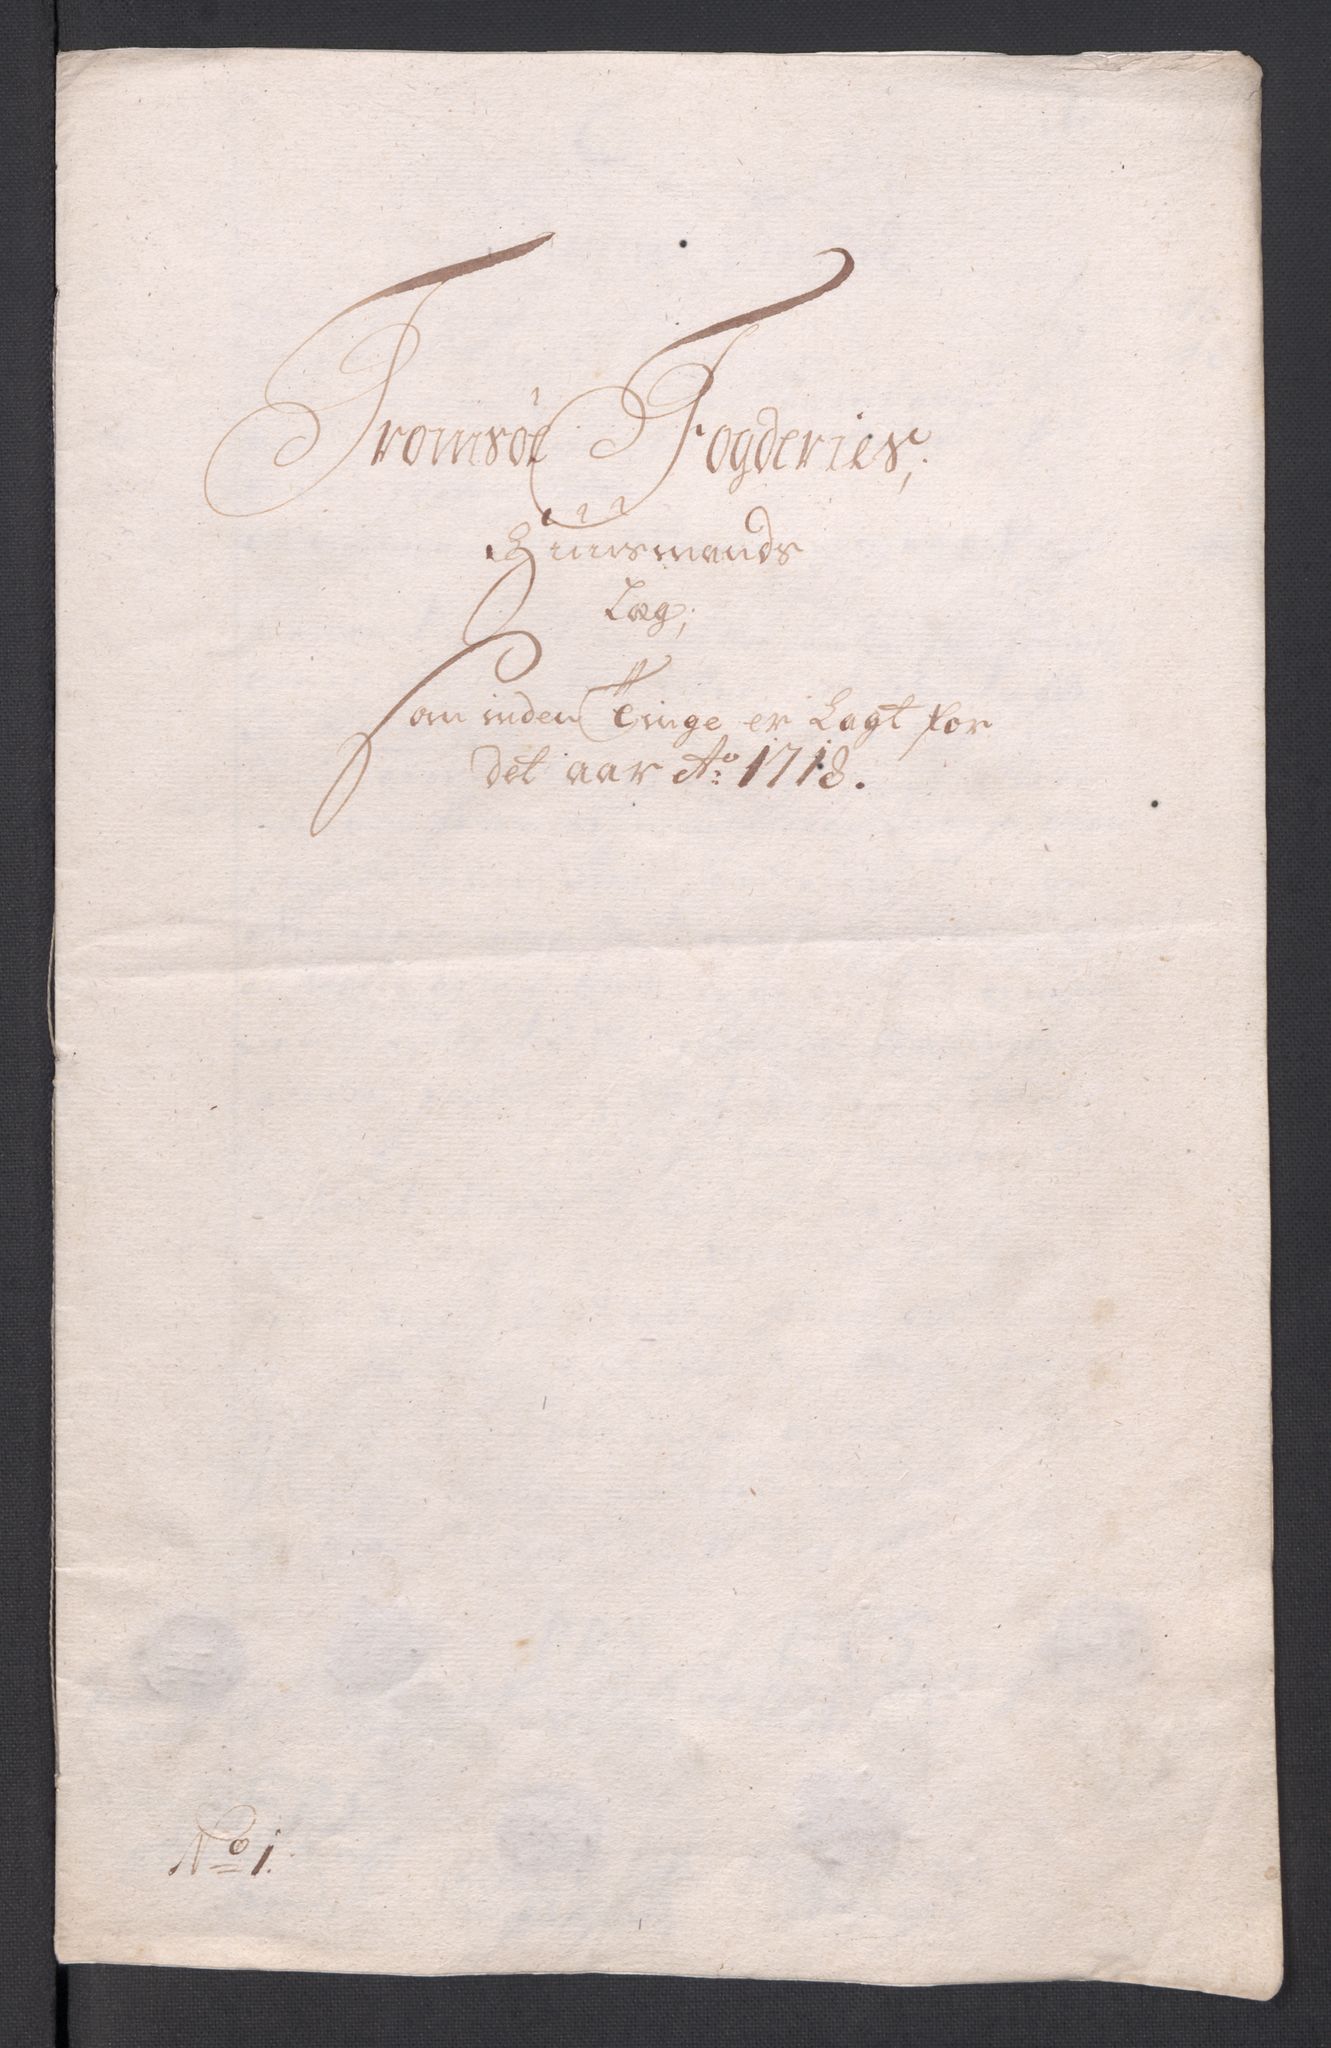 Tromsöe Fogderies;
Huusmands
Læg;
Som inden Tinge er Lagt for
det aar Ao 1718.
No 1.